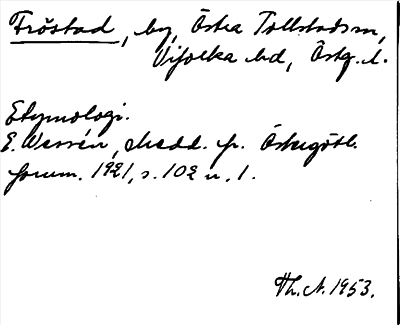 Fröstad, by, Östra Tollstads sn,
Vifolka hd, Östg. l.
Etymologi.
E. Wessén, Medd. fr. Östergötl.
fornm. 1921, s. 102 n. 1.
Th. A. 1953.